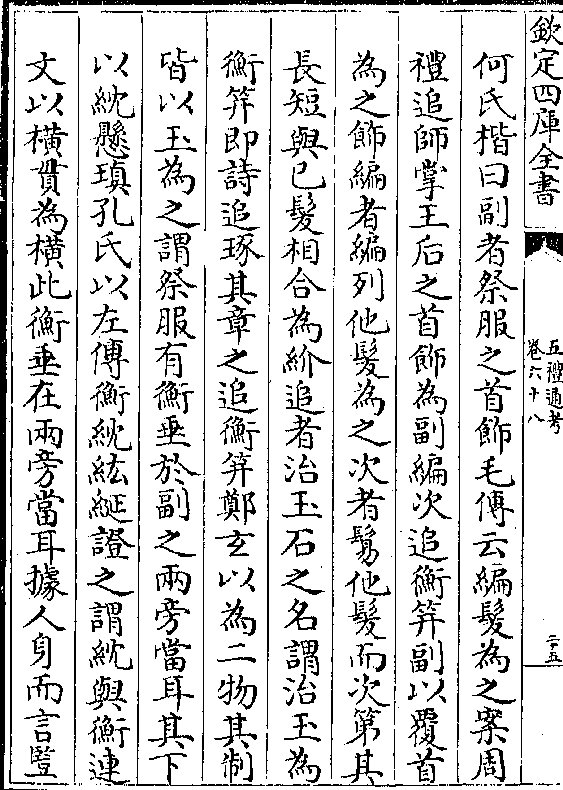 欽定四庫全書
五禮通考
卷六十八
二十五
何氏楷曰副者祭服之首飾毛傳云編髮為之案周
禮追師掌王后之首飾為副編次追衡笄副以覆首
為之飾編者編列他髮為之次者鬄他髮而次第其
長短與已髮相合為紒追者治玉石之名謂治玉為
衡笄即詩追琢其章之追衡笄鄭玄以為二物其制
皆以玉為之謂祭服有衡垂於副之兩旁當耳其下
以紞懸瑱孔氏以左傳衡紞紘綖證之謂紞與衡連
文以橫貫為橫此衡垂在兩旁當耳據人身而言豎